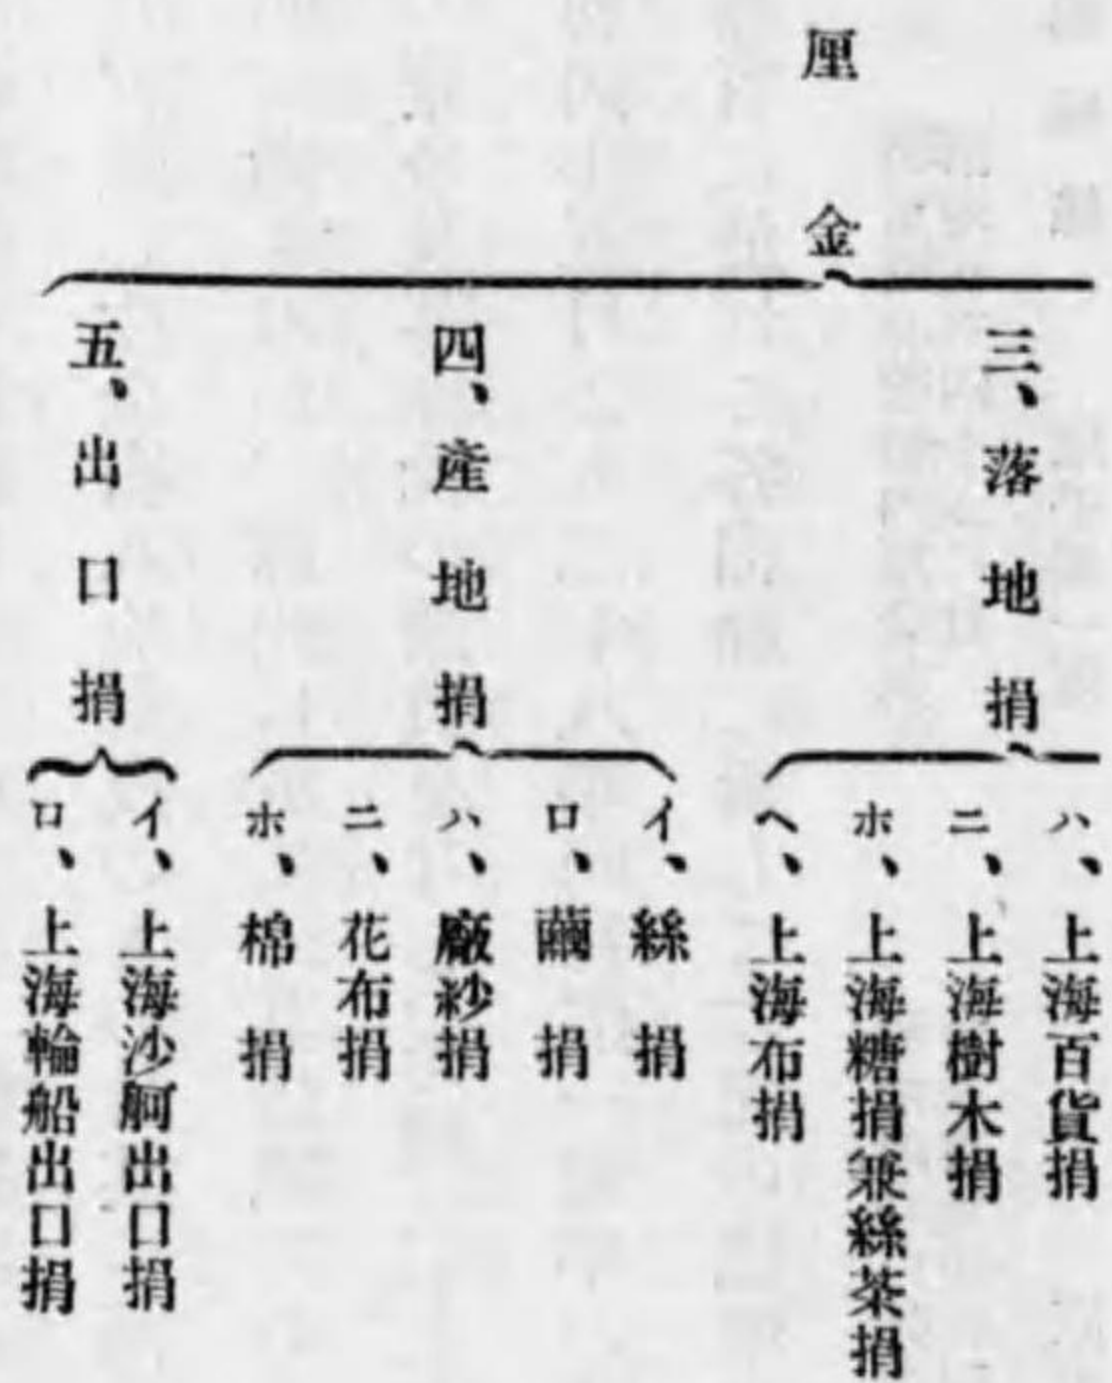 厘金
三、落地捐
ハ、上海百貨捐
ニ、上海樹木捐
ホ、上海糖捐兼絲茶捐
ヘ、上海布捐
四、產地捐
イ、絲捐
ロ、繭捐
ハ、廠紗捐
ニ、花布捐
ホ、棉捐
五、出口捐
イ、上海沙舸出口捐
ロ、上海輪船出口捐